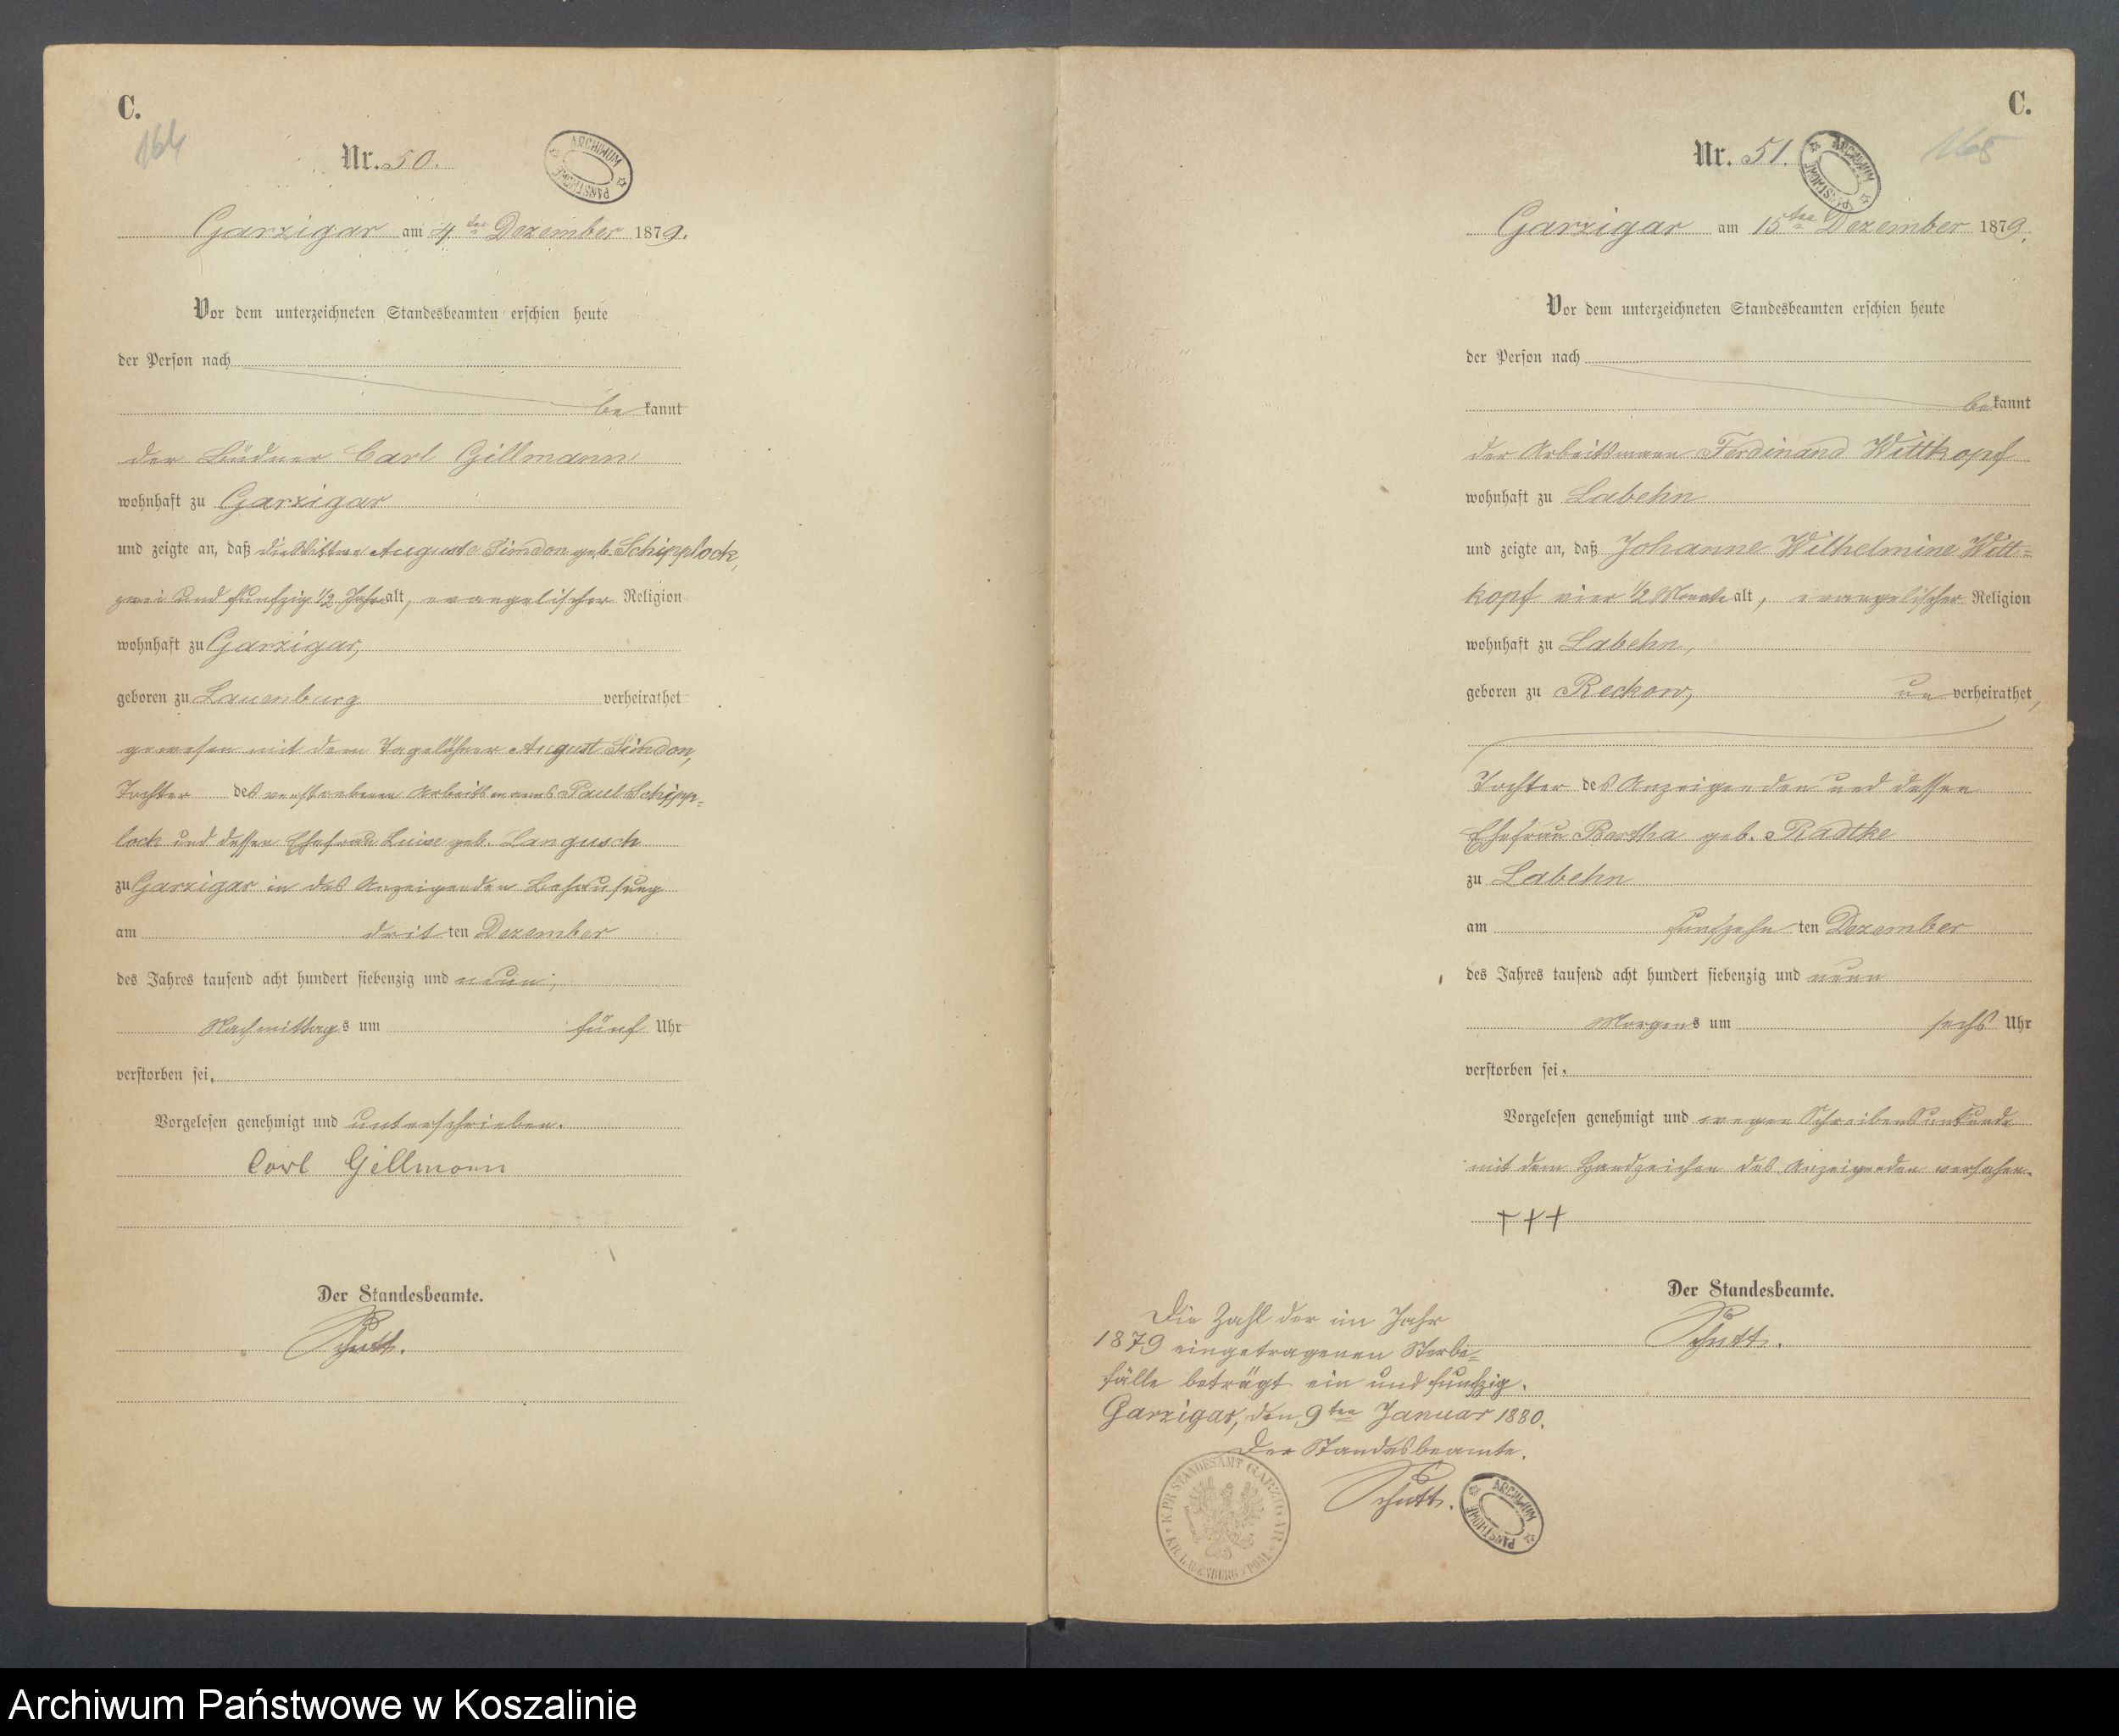 C.
164
Nr. 50.
ARCHIWUM PAŃSTWOWE
Garzigar am 4ten Dezember 1879.
Vor dem unterzeichneten Standesbeamten erschien heute
der Person nach
be kannt
der Büdner Carl Gillmann
wohnhaft zu Garzigar
und zeigte an, daß die Wittwe Auguste Simdon geb. Schipplock,
zwei und funfzig 1/2 Jahre alt, evangelischer Religion
wohnhaft zu Garzigar,
geboren zu Lauenburg verheirathet
gewesen mit dem Tagelöhner August Simdon,
Tochter des verstorbenen Arbeitsmanns Paul Schipp-
lock und dessen Ehefrau Luise geb. Langusch
zu Garzigar in des Anzeigenden Behausung
am drit ten Dezember
des Jahres tausend acht hundert siebenzig und neun,
Nachmittags um fünf Uhr
verstorben sei.
Vorgelesen genehmigt und unterschrieben.
Carl Gillmann
Der Standesbeamte.
Schutt.
C.
165
Nr. 51.
ARCHIWUM PAŃSTWOWE
Garzigar am 15ten Dezember 1879.
Vor dem unterzeichneten Standesbeamten erschien heute
der Person nach
be kannt
der Arbeitsmann Ferdinand Wittkopf
wohnhaft zu Labehn
und zeigte an, daß Johanne Wilhelmine Witt=
kopf vier 1/2 Monate alt, evangelischer Religion
wohnhaft zu Labehn,
geboren zu Reckow, un verheirathet,
Tochter des Anzeigenden und dessen
Ehefrau Bertha geb. Radtke
zu Labehn
am funfzehn ten Dezember
des Jahres tausend acht hundert siebenzig und neun
Morgens um sechs Uhr
verstorben sei.
Vorgelesen genehmigt und wegen Schreibensunkunde
mit dem Handzeichen des Anzeigenden versehen.
+++
Der Standesbeamte.
Schutt.
Die Zahl der im Jahr
1879 eingetragenen Sterbe=
fälle beträgt ein und funfzig.
Garzigar, den 9ten Januar 1880.
Der Standesbeamte.
Schutt.
K. PR. STANDESAMT GARZIGAR * KR. LAUENBURG i/POM. *
ARCHIWUM PAŃSTWOWE
Archiwum Państwowe w Koszalinie